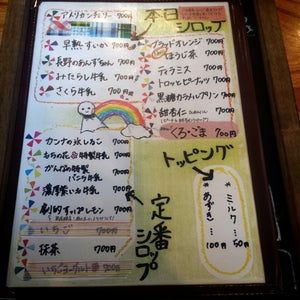 本日のシロップ
アメリカンチェリー 700円
早熟すいか 700円
長野のあんずちゃん 700円
みたらし牛乳 700円
さくら牛乳 700円
ブラッドオレンジ 700円
ほうじ茶 700円
ティラミス 700円
トロッとピーナッツ 700円
黒糖カラメルプリン 700円
甜杏仁
700円
くろごま 700円
定番シロップ
カンナの氷しるこ 700円
特製牛乳 700円
バニラ牛乳 700円
濃厚 牛乳 700円
レモン 700円
いちご 700円
抹茶 700円
いちごヨーグルト 700円
トッピング
ミルク… 50円
あずき… 100円